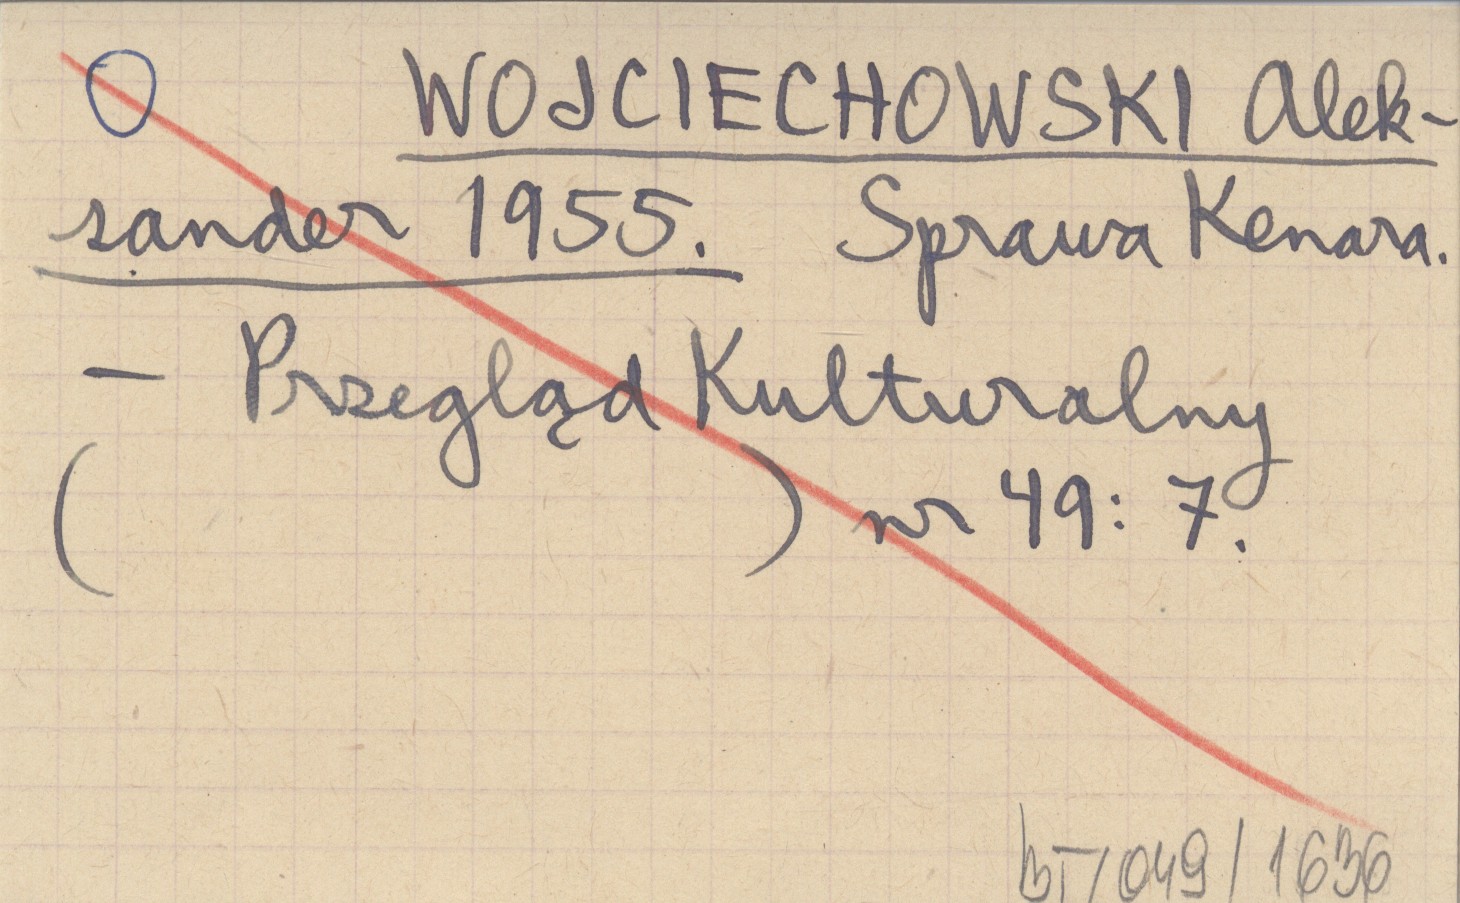 O WOJCIECHOWSKI Alek-
sander 1955. Sprawa Kenara.
- Przegląd Kulturalny
( ) nr 49: 7.
BT/049/1636